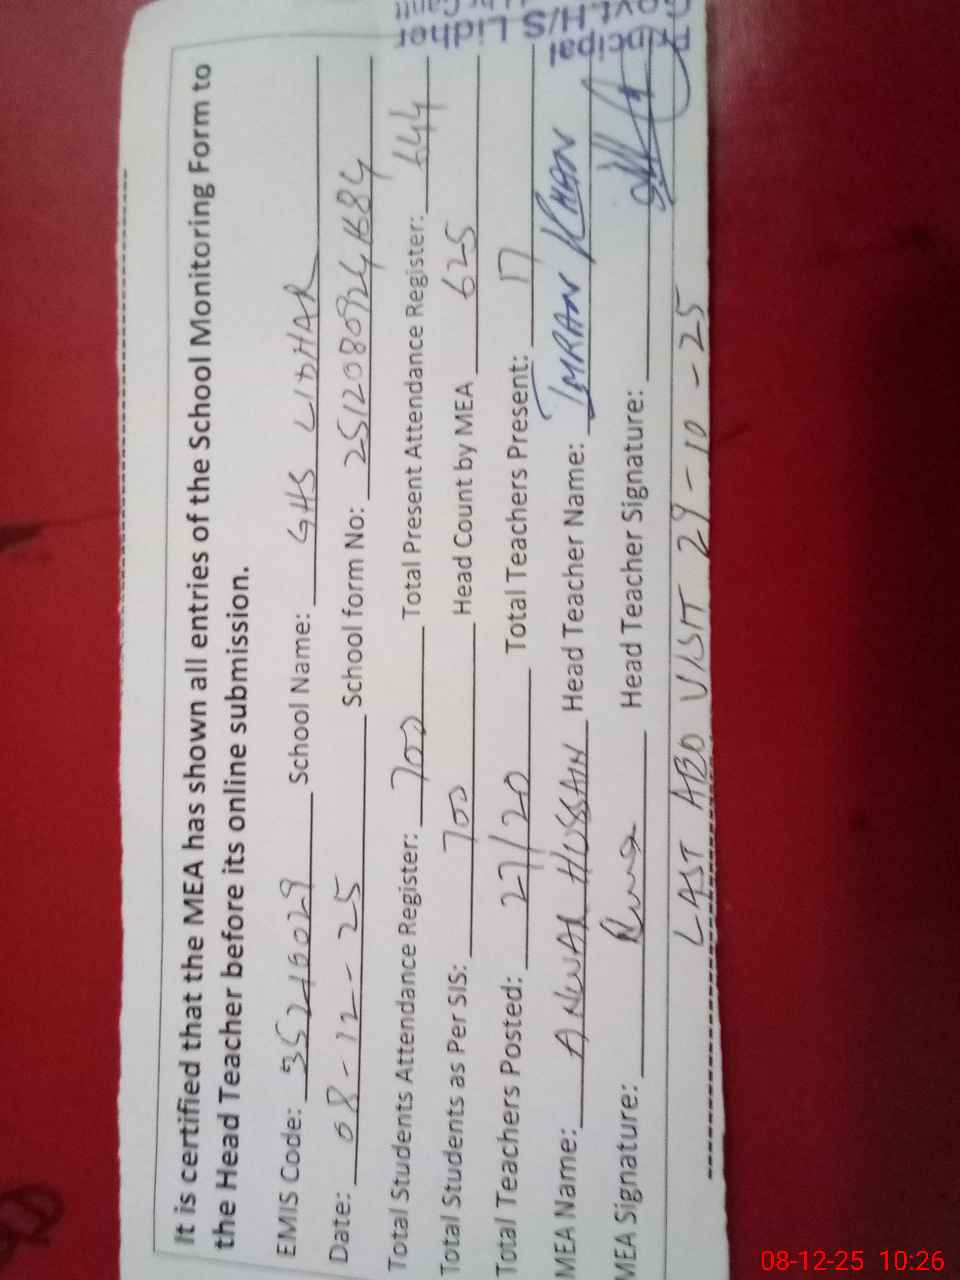 It is certified that the MEA has shown all entries of the School Monitoring Form to
the Head Teacher before its online submission.
EMIS Code: 35210029 School Name: GHS LIDHAR
Date: 08-12-25 School form No: 25120809241684
Total Students Attendance Register: 700 Total Present Attendance Register: 644
Total Students as Per SIS: 700 Head Count by MEA 625
Total Teachers Posted: 27/20 Total Teachers Present: 17
MEA Name: ANWAR HUSSAIN Head Teacher Name: IMRAN KHAN
MEA Signature: Head Teacher Signature:
LAST AEO VISIT 29-10-25
Principal
Govt.H/S Lidher
Cantt
08-12-25 10:26